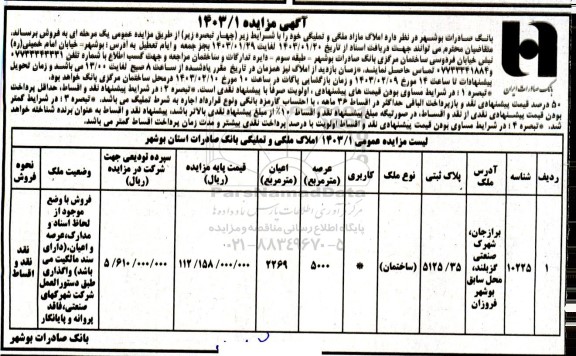 آگهی مزایده ۱۴۰۳/۱
بانک صادرات ایران
بانک صادرات بوشهر در نظر دارد املاک مازاد ملکی و تملیکی خود را با شرایط زیر (چهار تبصره زیر) از طریق مزایده عمومی یک مرحله ای به فروش برساند.
متقاضیان محترم می توانند جهت دریافت اسناد از تاریخ ۱۴۰۳/۰۱/۲۰ لغایت ۱۴۰۳/۰۱/۲۹ بجز جمعه و ایام تعطیل به آدرس: بوشهر- خیابان امام خمینی(ره)
نبش خیابان فردوسی ساختمان مرکزی بانک صادرات بوشهر - طبقه سوم - دایره تدارکات و ساختمان مراجعه و جهت کسب اطلاع با شماره تلفن ۰۷۷۳۳۳۳۳۳۴۱
و ۰۷۷۳۳۳۴۱۸۸۴ تماس حاصل نمایند. زمان بازدید از املاک نیز همزمان در تاریخ مقرر یادشده از ساعت ۸ لغایت ۱۳/۰۰ می باشند و زمان تحویل
پیشنهادات تا ساعت ۱۴ مورخ ۱۴۰۳/۰۱/۲۹ و زمان بازگشایی پاکات در ساعت ۱۰ مورخ ۱۴۰۳/۰۲/۰۱ در محل ساختمان مرکزی بانک خواهد بود.
*تبصره ۱: در شرایط مساوی بودن قیمت های پیشنهادی، اولویت صرفاً با پیشنهاد نقدی است. *تبصره ۲: در شرایط پیشنهاد نقد و اقساط، حداقل پرداخت
۵۰ درصد قیمت پیشنهادی نقد و بازپرداخت الباقی حداکثر در اقساط ۳۶ ماهه - با احتساب کارمزد بانکی ونوع قرارداد اجاره به شرط تملیک می باشد. *تبصره ۳: در شرایط کمتر
بودن قیمت پیشنهادی نقدی از نقد و اقساط، در صورتیکه مبلغ پیشنهاد نقد و اقساط ۱۰٪ از مبلغ پیشنهاد نقدی بالاتر باشد، پیشنهاد نقد و اقساط به عنوان برنده شناخته خواهد
شد. *تبصره ۴: در شرایط مساوی بودن قیمت پیشنهادی نقد و اقساط اولویت با درصد پرداخت نقدی بیشتر و مدت زمان پرداخت اقساط کمتر می باشد.
لیست مزایده عمومی ۱۴۰۳/۱ املاک ملکی و تملیکی بانک صادرات استان بوشهر
ردیف شناسه آدرس ملک پلاک ثبتی نوع ملک کاربری عرصه (مترمربع) اعیان (مترمربع) قیمت پایه مزایده (ریال) سپرده تودیعی جهت شرکت در مزایده (ریال) وضعیت ملک نحوه فروش
۱ ۱۰۲۲۵ برازجان، شهرک صنعتی گزبلند، محل سابق بوشهر فروزان ۵۱۲۵/۳۵ (ساختمان) * ۵۰۰۰ ۲۲۶۹ ۱۱۲/۱۵۸/۰۰۰/۰۰۰ ۵/۶۱۰/۰۰۰/۰۰۰ فروش با وضع موجود از لحاظ اسناد و مدارک، عرصه و اعیان. (دارای سند مالکیت می باشد) واگذاری طبق دستورالعمل شرکت شهرکهای صنعتی، فاقد پروانه و پایانکار نقد نقد و اقساط
۰۲۱-۸۸۳۴۹۶۷۰-۵
بانک صادرات بوشهر